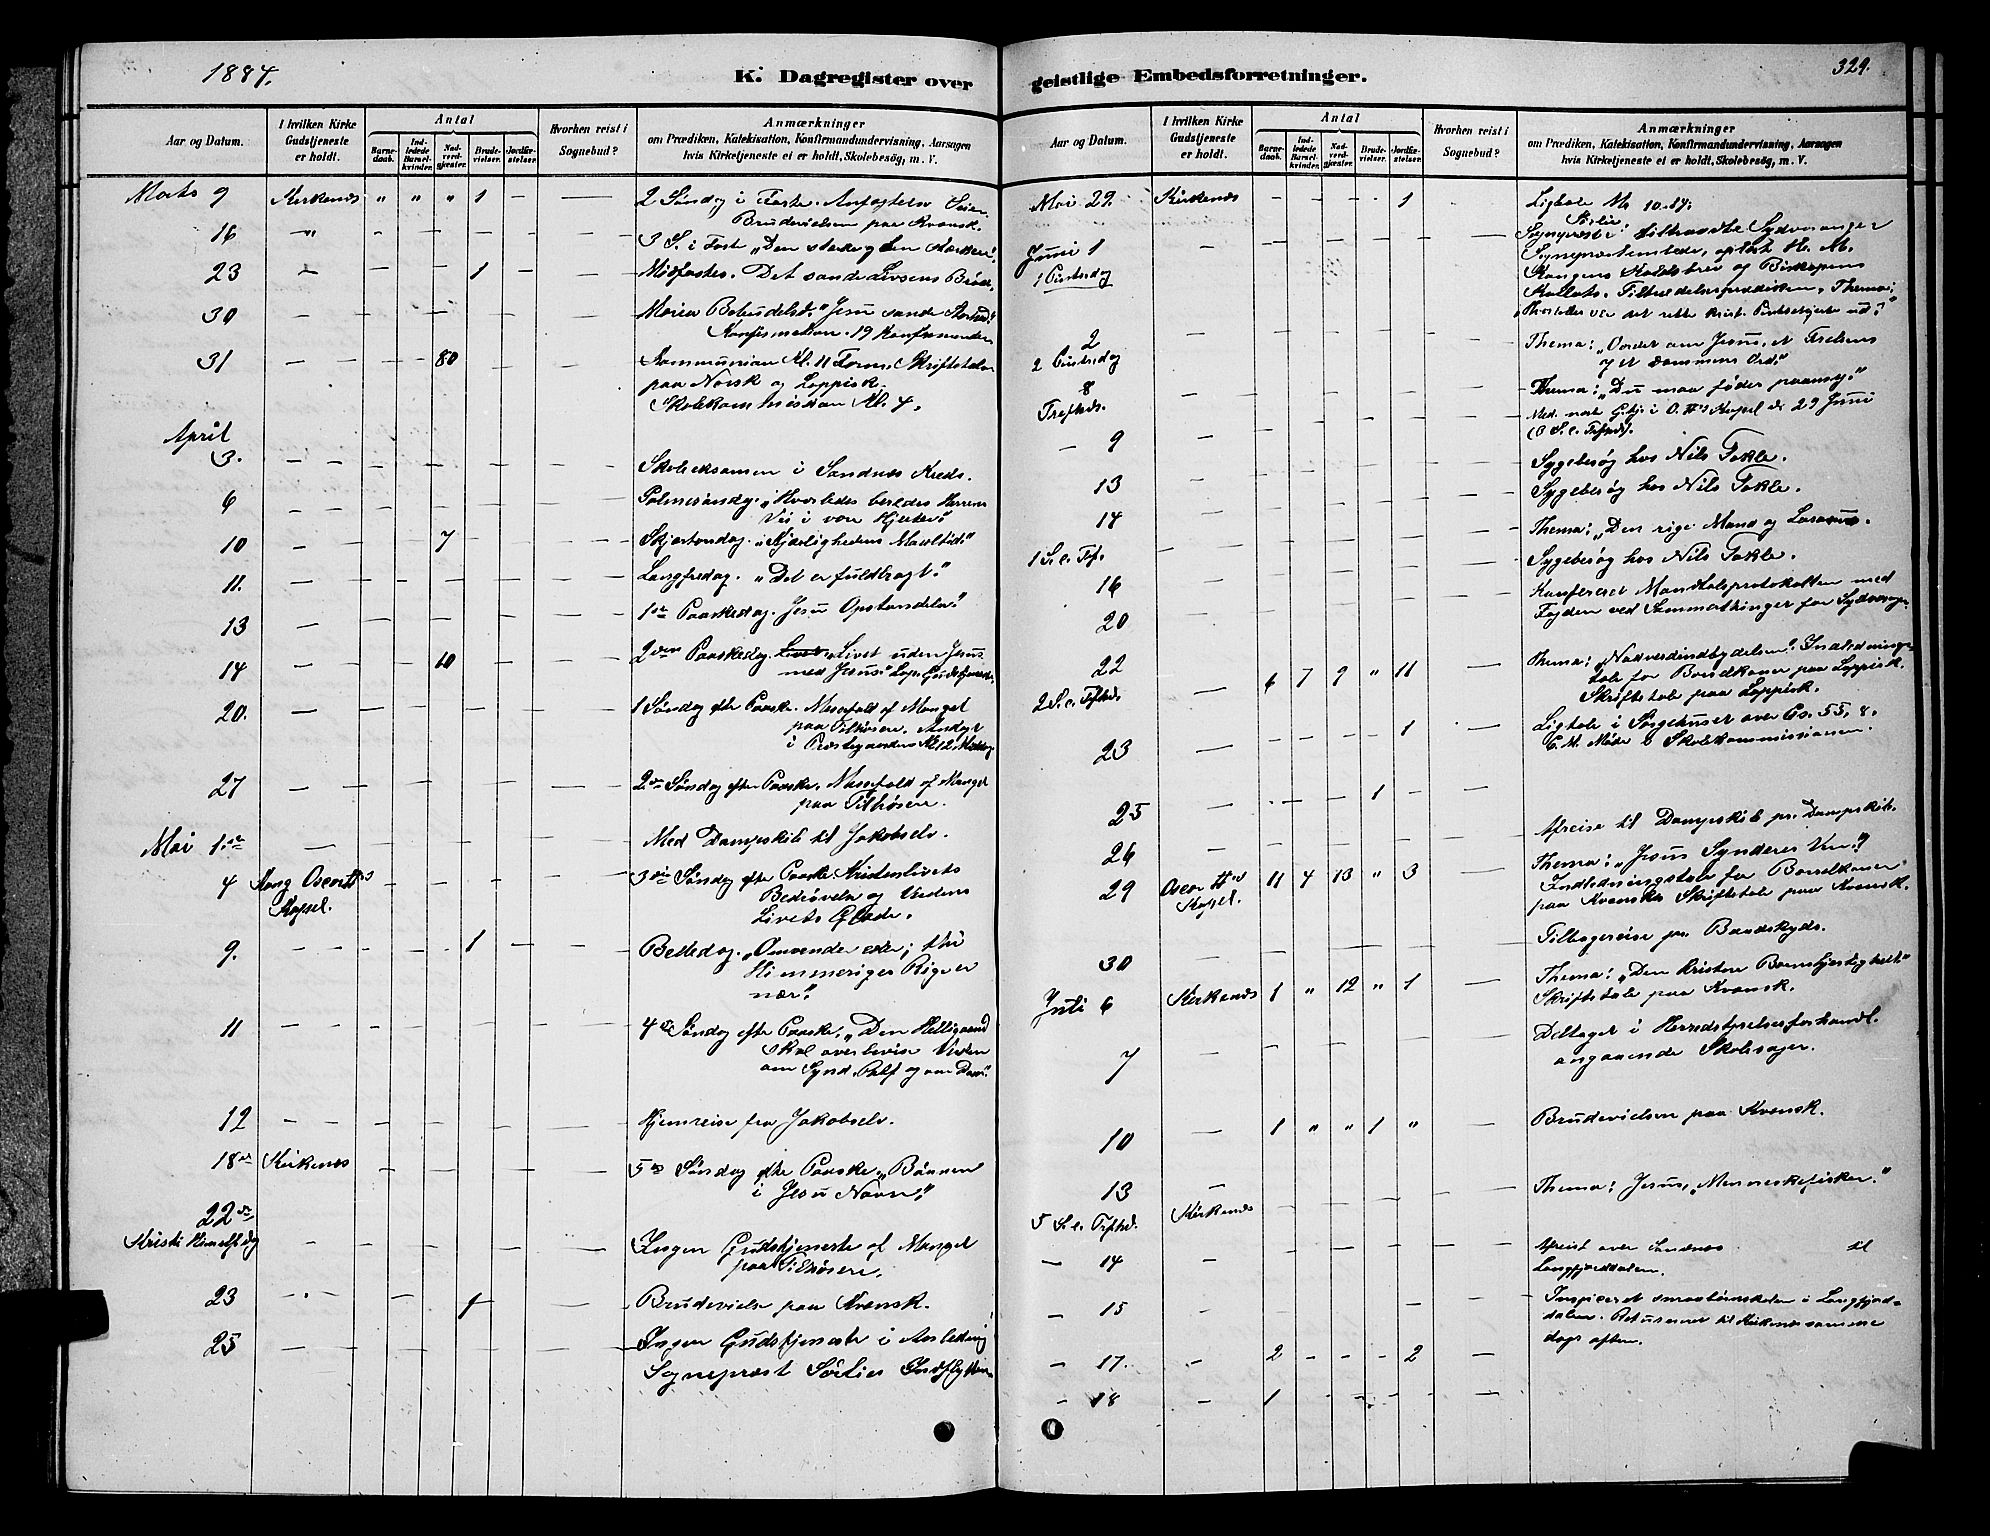 1884.
K. Dagregister over
Aar og Datum.
I hvilken Kirke Gudstjeneste er holdt.
Antal
Barnedaab.
Indledede Barselkvinder.
Nadverdgjæster.
Brudevielser.
Jordfæstelser.
Hvorhen reist i Sognebud?
Anmærkninger
om Prædiken, Katekisation, Konfirmandundervisning, Aarsagen
hvis Kirketjeneste ei er holdt, Skolebesøg, m. V.
Marts 9 Kirkenes " " " 1 — — 2 Søndag i Faste. Anfægtelser Seier
Brudevielsen paa Kvænsk.
16 — " — 3 S. i Fast „Den stærke og den stærkere"
23 — 1 — Midfaste. Det sande Livsens Brød.
30 — Mariæ Bebudelsd. „Jesu sande Storhed"
Konfirmation. 19 Konfirmander
31 — 80 — Kommunion Kl. 11 Form. Skriftetaler
paa Norsk og Lappisk.
Skolekommission Kl. 4.
April
3. — Skoleeksamen i Sandnes Kreds.
6 — Palmesøndag. „Hvorledes beredes Herrens
Vei i vore Hjerter"
10 — 7 — Skjærtorsdag. „Kjærlighedens Maaltid."
11. — Langfredag. „Det er fuldbragt."
13 — 1ste Paaskedag. Jesu Opstandelse."
14 — 10 — 2den Paaskedag. „Livet uden Jesus
med Jesus." Lap. Gudstjeneste.
20. — 1 Søndag efter Paaske. Messefald af Mangel
paa Tilhørere. Andagt
i Præstegaarden Kl 12 Middag
27 — 2den Søndag efter Paaske. Messefald af Mangel
paa Tilhørere.
Mai 1ste — Med Dampskib til Jakobselv.
4 Kong Oscar II's
Kapel. — 3die Søndag efter Paaske Kristenlivets
Bedrøvelse og Verdens
Livets Glæde.
9. — 1 — Bededag. „Omvender eder; thi
Himmeriges Rige er
nær".
11 — 4de Søndag efter Paaske. „Den Helligaand
skal overbevise Verden
om Synd, Retf og om Dom".
12 — Hjemreise fra Jakobselv.
18de Kirkenes — 5te Søndag efter Paaske „Bønnen
i Jesu Navn".
22de
Kristi Himmelf. dag — Ingen Gudstjeneste af Mangel
paa Tilhørere.
23 — 1 — Brudevielse paa Kvænsk.
25 — Ingen Gudstjeneste i Anledning
Sognepræst Sørlies Indflytten
geistlige Embedsforretninger.
329.
Aar og Datum.
I hvilken Kirke Gudstjeneste er holdt.
Antal
Barnedaab.
Indledede Barselkvinder.
Nadverdgjæster.
Brudevielser.
Jordfæstelser.
Hvorhen reist i Sognebud?
Anmærkninger
om Prædiken, Katekisation, Konfirmandundervisning, Aarsagen
hvis Kirketjeneste ei er holdt, Skolebesøg, m. V.
Mai 29. Kirkenes — — — — 1 — Ligtale
Juni 1
1 Pintsedag — Sognepræst Sørlie tiltraadte Sydvaranger
Sognepræstembede, oplæst H. M.
Kongens Kaldsbrev og Biskopens
Kollats. Tiltrædelsesprædiken. Thema:
2
2 Pintsedag — Thema: „Ordet om Jesus, et Frelsens
og et Dommens Ord."
8
Trefhds. — Thema: „Du maa fødes paany."
Med. not G.tj. i O. II's Kapel d. 29 Juni
(3 S. e. Trfhds).
— 9 — Sygebesøg hos Nils Tokle.
13 — Sygebesøg hos Nils Tokle.
14 — Thema: „Den rige Mand og Lasarus.
1 S. e. Trf. — Sygebesøg hos Nils Tokle.
16 — Konfereret Mandtalsprotokollen med
Fogden ved Sommerthinget for Sydvaranger
20 —
22
2 S. e. Trfhds. — 6 7 9 " 11 — Thema: „Nadverdindbydelsen". Indledningstale
for Barselkoner paa Lappisk.
Skriftetale paa Lappisk.
23 — 1 — Ligtale i Sørgehuset over Es. 55, 8.
E. M. Møde i Skolekommissionen.
25 — 1 —
26 — Afreise til pr. Dampskib.
29 Oscar II's
Kapel. 11 4 13 " 3 — Thema: „Jesus Synderes Ven."
Indledningstale for Barselkoner
paa Kvænsk. Skriftetale paa Kvænsk.
30 — Tilbagereise pr. Baadskyds.
Juli 6 Kirkenes 1 " 12 " 1 — Thema: „Den kristne Barmhjertighed."
Skriftetale paa Kvænsk.
7 — Deltaget i Herredsstyrelsesforhandl.
angaaende Skolesager.
10 — 1 " " 1 " — Brudevielsen paa Kvænsk.
13
5 S. e. Trfhd. Kirkenes — Thema: Jesus, „Menneskefisker."
— 14 — Afreist over Sandnes til
Langfjorddalen.
— 15 — Inspiceret smaabørnskolen i Langfjorddalen.
Returneret til Kirkenes samme
dags aften.
— 17. — 2 — — — 2 —
— 18 — 1 —